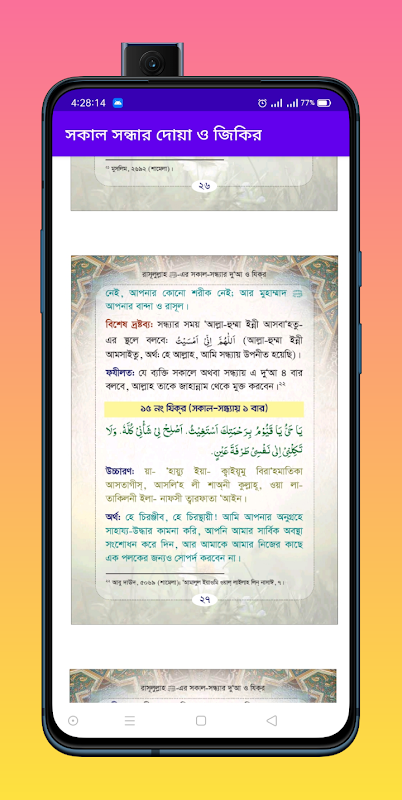 4:28:14
77%
সকাল সন্ধার দোয়া ও জিকির
১১ মুসলিম, ২৬৯২ (শামেলা)।
২৬
রাসূলুল্লাহ ﷺ-এর সকাল-সন্ধ্যার দু'আ ও যিক্‌র
নেই, আপনার কোনো শরীক নেই; আর মুহাম্মাদ ﷺ
আপনার বান্দা ও রাসূল।
বিশেষ দ্রষ্টব্য: সন্ধ্যার সময় 'আল্লা-হুম্মা ইন্নী আসবা'হতু-
এর স্থলে বলবে: اَللّٰهُمَّ اِنِّيْ اَمْسَيْتُ (আল্লা-হুম্মা ইন্নী
আমসাইতু, অর্থ: হে আল্লাহ, আমি সন্ধ্যায় উপনীত হয়েছি)।
ফযীলত: যে ব্যক্তি সকালে অথবা সন্ধ্যায় এ দু'আ ৪ বার
বলবে, আল্লাহ তাকে জাহান্নাম থেকে মুক্ত করবেন।২২
১৫ নং যিক্‌র (সকাল-সন্ধ্যায় ১ বার)
يَا حَيُّ يَا قَيُّوْمُ بِرَحْمَتِكَ اَسْتَغِيْثُ. اَصْلِحْ لِيْ شَأْنِيْ كُلَّهٗ. وَلَا
تَكِلْنِيْ اِلٰى نَفْسِيْ طَرْفَةَ عَيْنٍ.
উচ্চারণ: ইয়া- 'হায়্যু ইয়া- ক্বাইয়ূমু বিরা'হমাতিকা
আসতাগীস্, আসলি'হ লী শা'অ্নী কুল্লাহূ, ওয়া লা-
তাকিলনী ইলা- নাফসী ত্বারফাতা 'আইন।
অর্থ: হে চিরঞ্জীব, হে চিরস্থায়ী! আমি আপনার অনুগ্রহে
সাহায্য-উদ্ধার কামনা করি, আপনি আমার সার্বিক অবস্থা
সংশোধন করে দিন, আর আমাকে আমার নিজের কাছে
এক পলকের জন্যও সোপর্দ করবেন না।
২২ আবু দাউদ, ৫০৬৯ (শামেলা); 'আমালুল ইয়াওমি ওয়াল্ লাইলাহ লিন্ নাসাঈ, ৭।
২৭
রাসূলুল্লাহ ﷺ-এর সকাল-সন্ধ্যার দু'আ ও যিক্‌র